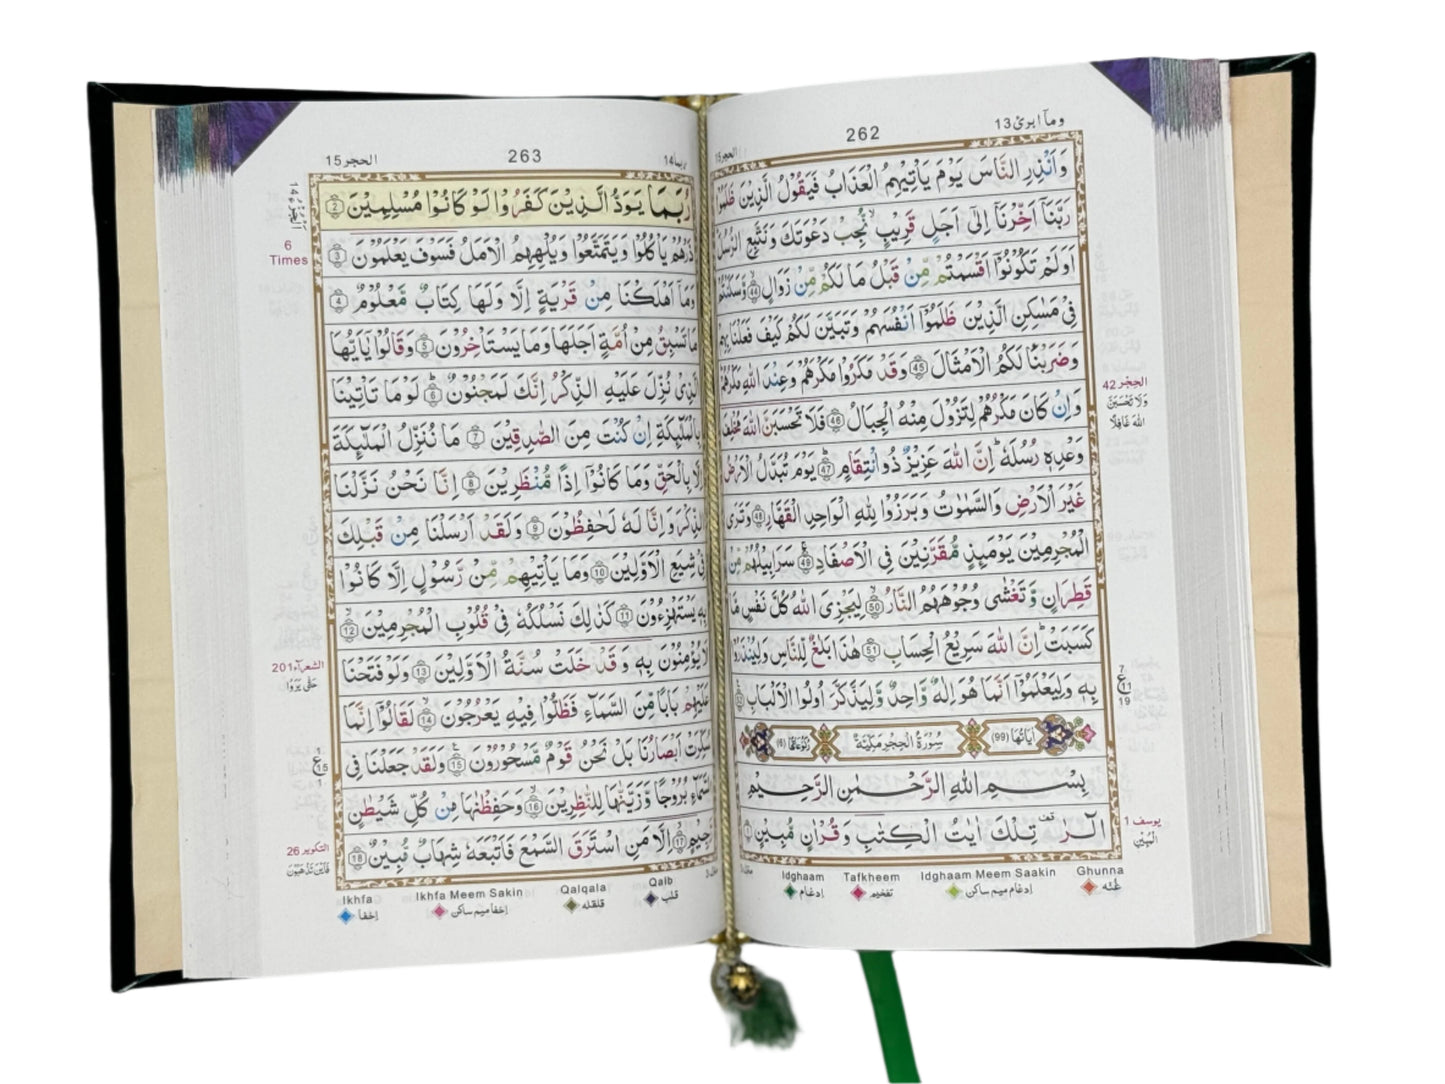 وماابرئ13
262
الحجر15
وَاَنْذِرِ النَّاسَ يَوْمَ يَاْتِيْهِمُ الْعَذَابُ فَيَقُوْلُ الَّذِيْنَ ظَلَمُوْا
رَبَّنَاۤ اَخِّرْنَاۤ اِلٰۤى اَجَلٍ قَرِيْبٍۙ نُّجِبْ دَعْوَتَكَ وَنَتَّبِعِ الرُّسُلَ
اَوَلَمْ تَكُوْنُوْۤا اَقْسَمْتُمْ مِّنْ قَبْلُ مَا لَكُمْ مِّنْ زَوَالٍ ۝٤٤ وَّسَكَنْتُمْ
فِيْ مَسٰكِنِ الَّذِيْنَ ظَلَمُوْۤا اَنْفُسَهُمْ وَتَبَيَّنَ لَكُمْ كَيْفَ فَعَلْنَا بِهِمْ
وَضَرَبْنَا لَكُمُ الْاَمْثَالَ ۝٤٥ وَقَدْ مَكَرُوْا مَكْرَهُمْ وَعِنْدَ اللّٰهِ مَكْرُهُمْ
وَاِنْ كَانَ مَكْرُهُمْ لِتَزُوْلَ مِنْهُ الْجِبَالُ ۝٤٦ فَلَا تَحْسَبَنَّ اللّٰهَ مُخْلِفَ
وَعْدِهٖ رُسُلَهٗ ؕ اِنَّ اللّٰهَ عَزِيْزٌ ذُو انْتِقَامٍ ۝٤٧ يَوْمَ تُبَدَّلُ الْاَرْضُ
غَيْرَ الْاَرْضِ وَالسَّمٰوٰتُ وَبَرَزُوْا لِلّٰهِ الْوَاحِدِ الْقَهَّارِ ۝٤٨ وَتَرَى
الْمُجْرِمِيْنَ يَوْمَئِذٍ مُّقَرَّنِيْنَ فِي الْاَصْفَادِ ۝٤٩ سَرَابِيْلُهُمْ مِّنْ
قَطِرَانٍ وَّتَغْشٰى وُجُوْهَهُمُ النَّارُ ۝٥٠ لِيَجْزِيَ اللّٰهُ كُلَّ نَفْسٍ مَّا
كَسَبَتْ ؕ اِنَّ اللّٰهَ سَرِيْعُ الْحِسَابِ ۝٥١ هٰذَا بَلٰغٌ لِّلنَّاسِ وَلِيُنْذَرُوْا
بِهٖ وَلِيَعْلَمُوْۤا اَنَّمَا هُوَ اِلٰهٌ وَّاحِدٌ وَّلِيَذَّكَّرَ اُولُوا الْاَلْبَابِ ۝٥٢
اٰيَاتُهَا (99) سُوْرَةُ الْحِجْرِ مَكِّيَّةٌ رُكُوْعَاتُهَا (6)
بِسْمِ اللّٰهِ الرَّحْمٰنِ الرَّحِيْمِ
الٓرٰ قف تِلْكَ اٰيٰتُ الْكِتٰبِ وَقُرْاٰنٍ مُّبِيْنٍ ۝١
الحجر 42
وَلَا تَحْسَبَنَّ
اللّٰهَ غَافِلًا
7
ع
11
19
يوسف 1
الْمُبِيْنِ
Ghunna Idghaam Meem Saakin Tafkheem Idghaam
غُنّه إدغام ميم ساكن تفخيم إدغام
ربما14
263
الحجر15
رُبَمَا يَوَدُّ الَّذِيْنَ كَفَرُوْا لَوْ كَانُوْا مُسْلِمِيْنَ ۝٢
ذَرْهُمْ يَاْكُلُوْا وَيَتَمَتَّعُوْا وَيُلْهِهِمُ الْاَمَلُ فَسَوْفَ يَعْلَمُوْنَ ۝٣
وَمَاۤ اَهْلَكْنَا مِنْ قَرْيَةٍ اِلَّا وَلَهَا كِتَابٌ مَّعْلُوْمٌ ۝٤
مَا تَسْبِقُ مِنْ اُمَّةٍ اَجَلَهَا وَمَا يَسْتَاْخِرُوْنَ ۝٥ وَقَالُوْا يٰۤاَيُّهَا
الَّذِيْ نُزِّلَ عَلَيْهِ الذِّكْرُ اِنَّكَ لَمَجْنُوْنٌ ۝٦ لَوْ مَا تَاْتِيْنَا
بِالْمَلٰٓئِكَةِ اِنْ كُنْتَ مِنَ الصّٰدِقِيْنَ ۝٧ مَا نُنَزِّلُ الْمَلٰٓئِكَةَ
اِلَّا بِالْحَقِّ وَمَا كَانُوْۤا اِذًا مُّنْظَرِيْنَ ۝٨ اِنَّا نَحْنُ نَزَّلْنَا
الذِّكْرَ وَاِنَّا لَهٗ لَحٰفِظُوْنَ ۝٩ وَلَقَدْ اَرْسَلْنَا مِنْ قَبْلِكَ
فِيْ شِيَعِ الْاَوَّلِيْنَ ۝١٠ وَمَا يَاْتِيْهِمْ مِّنْ رَّسُوْلٍ اِلَّا كَانُوْا
بِهٖ يَسْتَهْزِءُوْنَ ۝١١ كَذٰلِكَ نَسْلُكُهٗ فِيْ قُلُوْبِ الْمُجْرِمِيْنَ ۝١٢
لَا يُؤْمِنُوْنَ بِهٖ وَقَدْ خَلَتْ سُنَّةُ الْاَوَّلِيْنَ ۝١٣ وَلَوْ فَتَحْنَا
عَلَيْهِمْ بَابًا مِّنَ السَّمَآءِ فَظَلُّوْا فِيْهِ يَعْرُجُوْنَ ۝١٤ لَقَالُوْۤا اِنَّمَا
سُكِّرَتْ اَبْصَارُنَا بَلْ نَحْنُ قَوْمٌ مَّسْحُوْرُوْنَ ۝١٥ وَلَقَدْ جَعَلْنَا فِي
السَّمَآءِ بُرُوْجًا وَّزَيَّنّٰهَا لِلنّٰظِرِيْنَ ۝١٦ وَحَفِظْنٰهَا مِنْ كُلِّ شَيْطٰنٍ
رَّجِيْمٍ ۝١٧ اِلَّا مَنِ اسْتَرَقَ السَّمْعَ فَاَتْبَعَهٗ شِهَابٌ مُّبِيْنٌ ۝١٨
6
Times
الشعراء 201
حَتّٰى يَرَوُا
ع
1
15
التكوير 26
فَاَيْنَ تَذْهَبُوْنَ
Qalb Qalqala Ikhfa Meem Sakin Ikhfa
قلب قلقله إخفا ميم ساكن إخفا